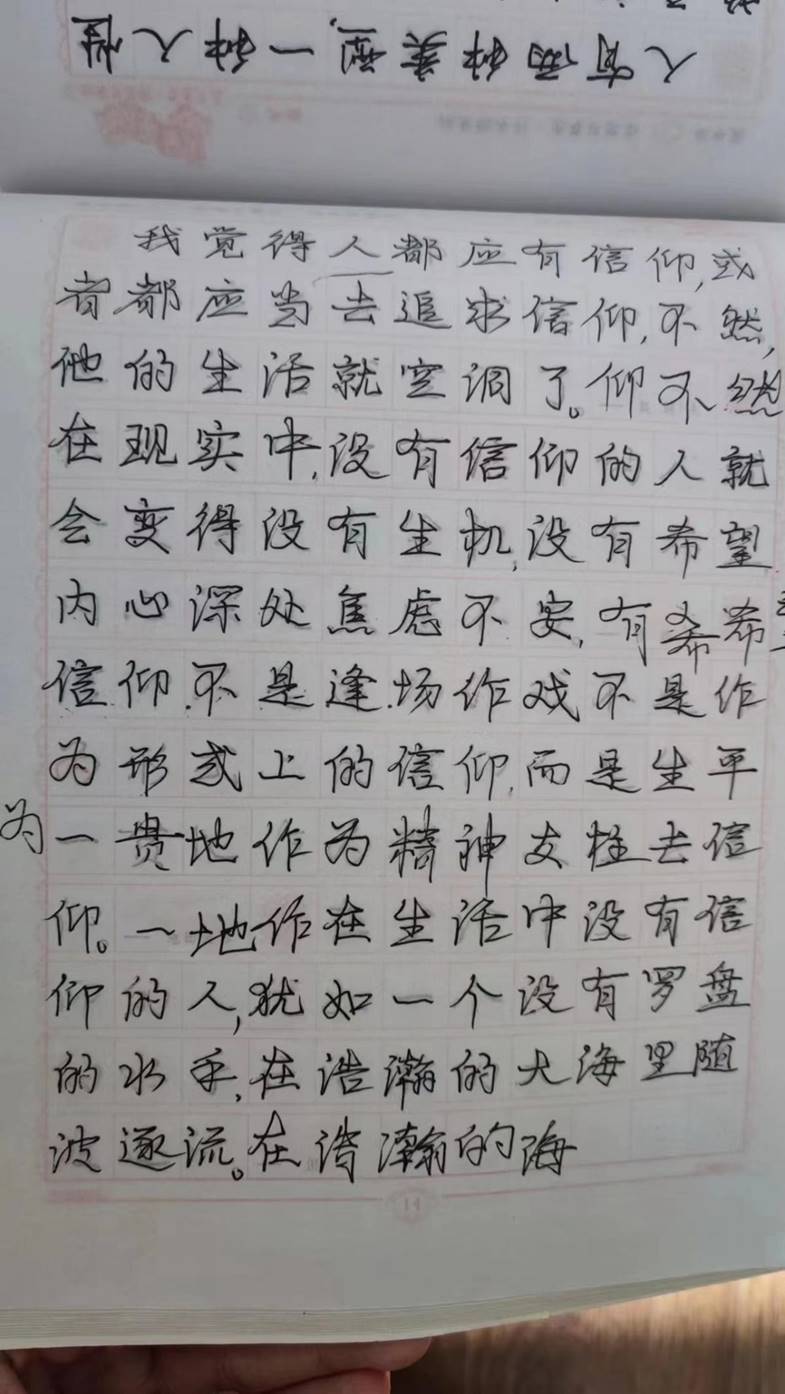 人有两种类型,一种人性
我觉得人都应有信仰,或
者都应当去追求信仰,不然,
他的生活就空洞了。仰不然
在现实中,没有信仰的人就
会变得没有生机,没有希望
内心深处焦虑不安,有希希望
信仰.不是逢场作戏不是作
为形式上的信仰,而是生平
为一贯地作为精神支柱去信
仰。一地作在生活中没有信
仰的人,犹如一个没有罗盘
的水手,在浩瀚的大海里随
波逐流。在浩瀚的海
11